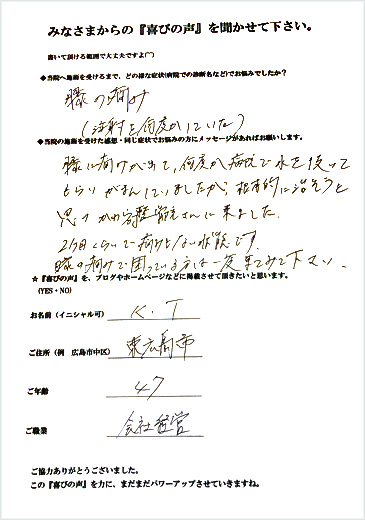 みなさまからの『喜びの声』を聞かせて下さい。
書いて頂ける範囲で大丈夫ですよ(^^)
◆当院へ施術を受けるまで、どの様な症状(病院での診断名など)でお悩みでしたか？
膝の痛み
(注射を何度かしていた)
◆当院の施術を受けた感想・同じ症状でお悩みの方にメッセージがあればお願いします。
膝に痛みが出て、何度か病院で水を抜いて
もらいがまんしていましたが、根本的に治そうと
思って さんに来ました。
2ヶ月くらいで痛みもない状態です。
膝の痛みで困っている方は一度来てみて下さい。
★『喜びの声』を、ブログやホームページなどに掲載させて頂きたいと思います。
(YES・NO)
お名前（イニシャル可） K.T
ご住所（例　広島市中区） 東広島市
ご年齢 47
ご職業 会社経営
ご協力ありがとうございました。
この『喜びの声』を力に、まだまだパワーアップさせていきますね。